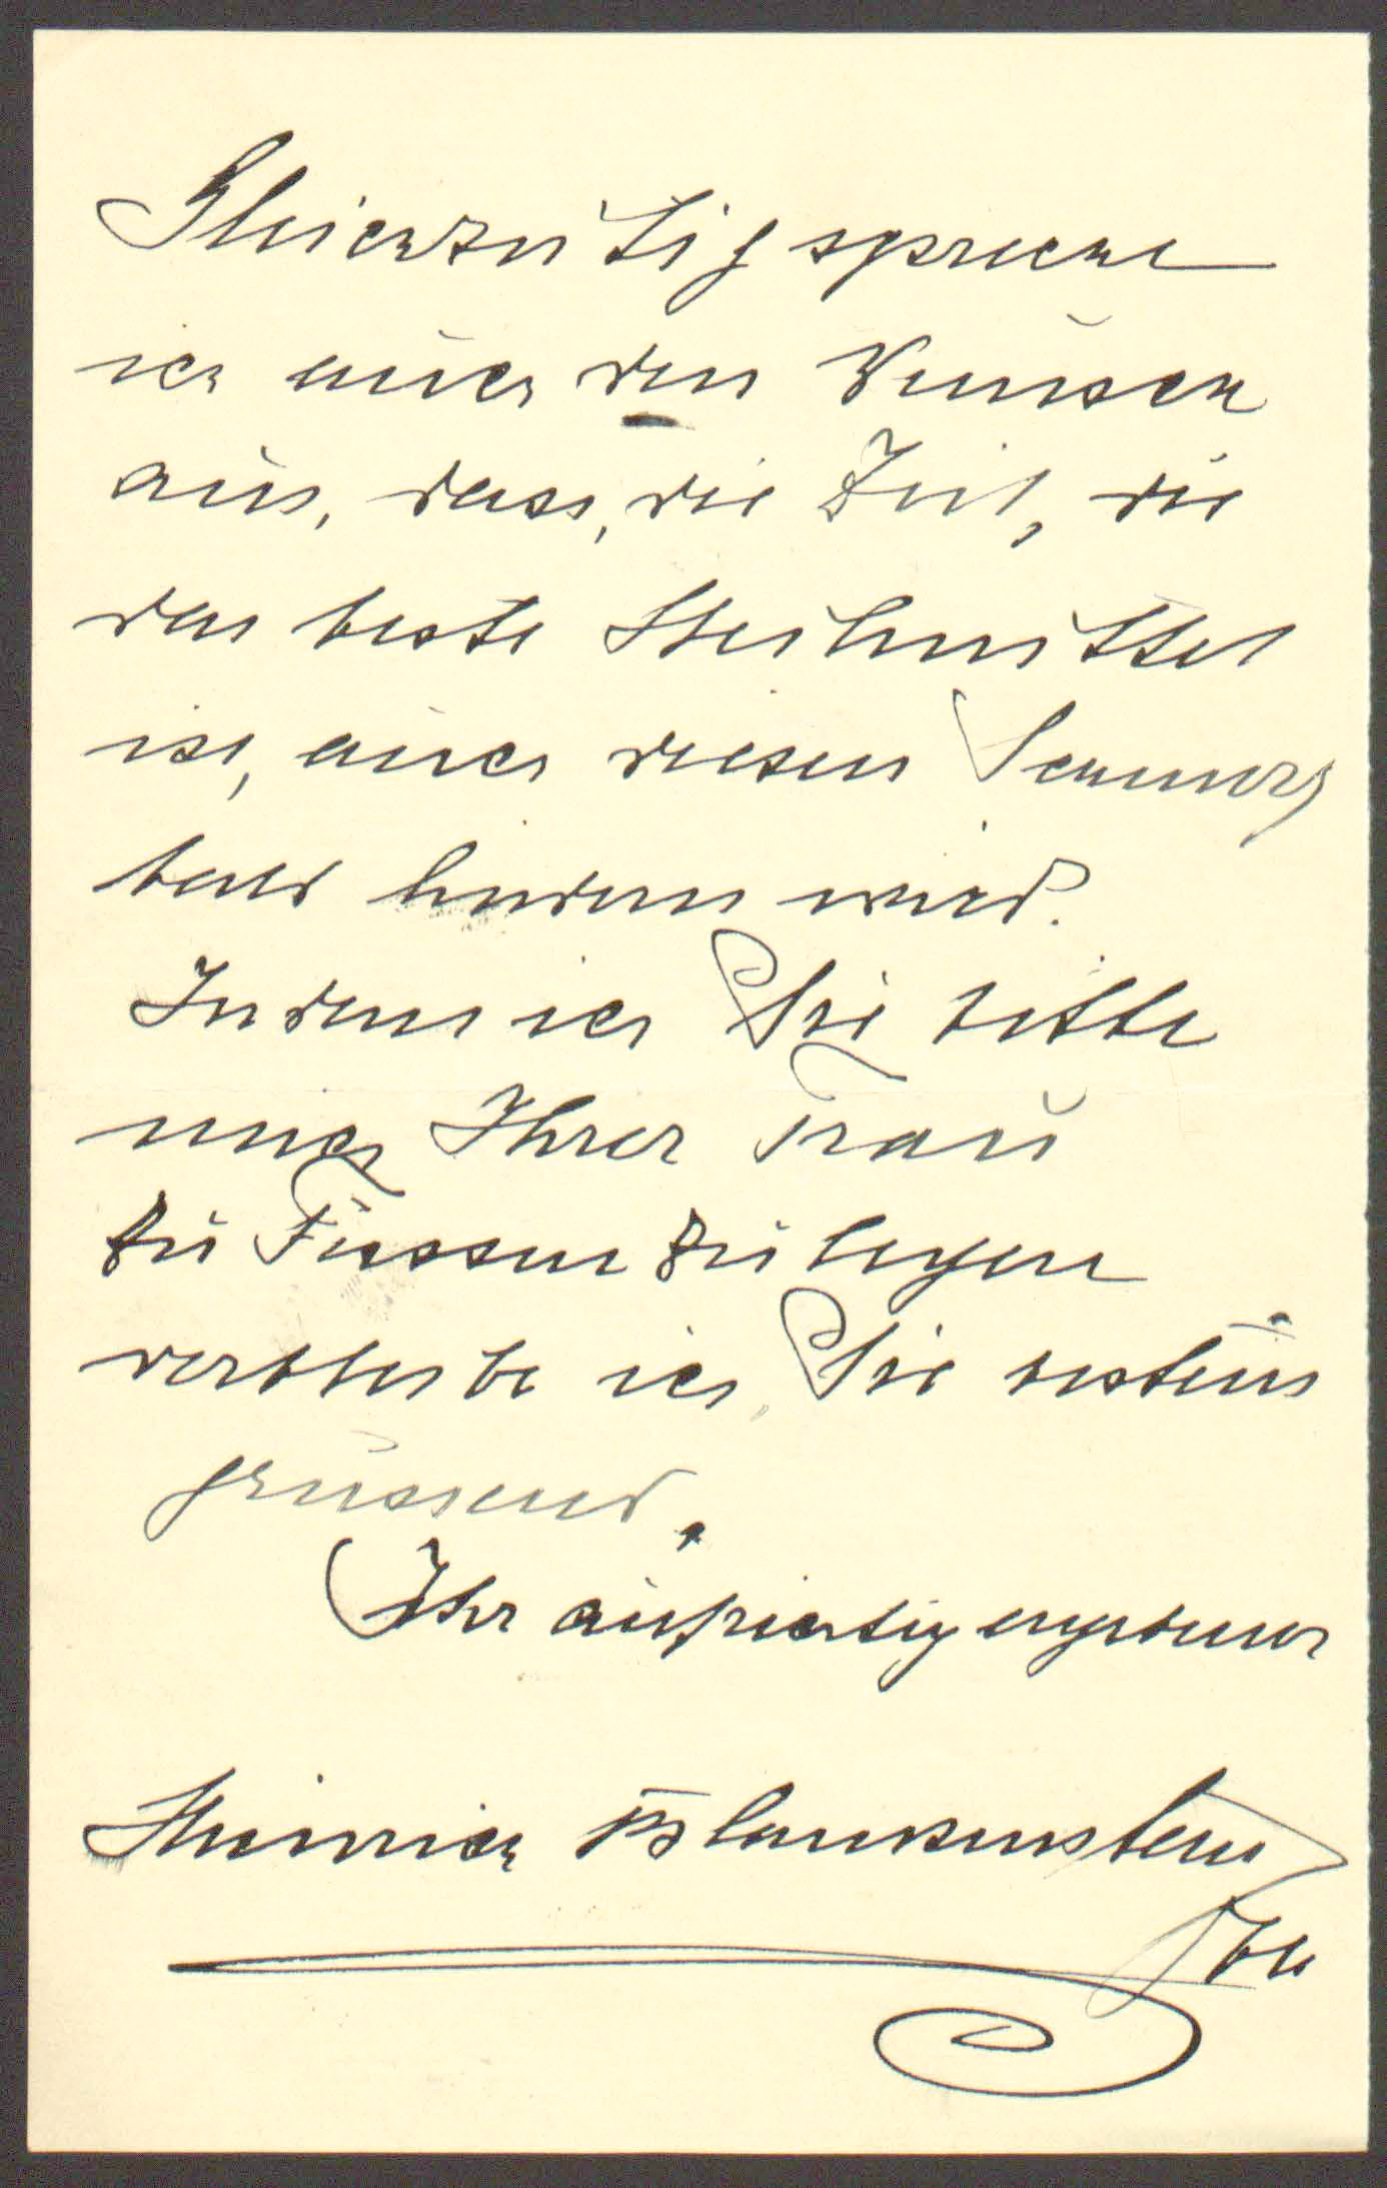 Gleichzeitig spreche
ich auch den Wunsch
aus, dass, die Zeit, die
das beste Heilmittel
ist, auch diesen Schmerz
bald lindern wird.
Indem ich Sie bitte
mich Ihrer Frau
zu Füssen zu legen
verbleibe ich, Sie bestens
grüssend,
Ihr aufrichtig ergebener
Heinrich Blankenstein